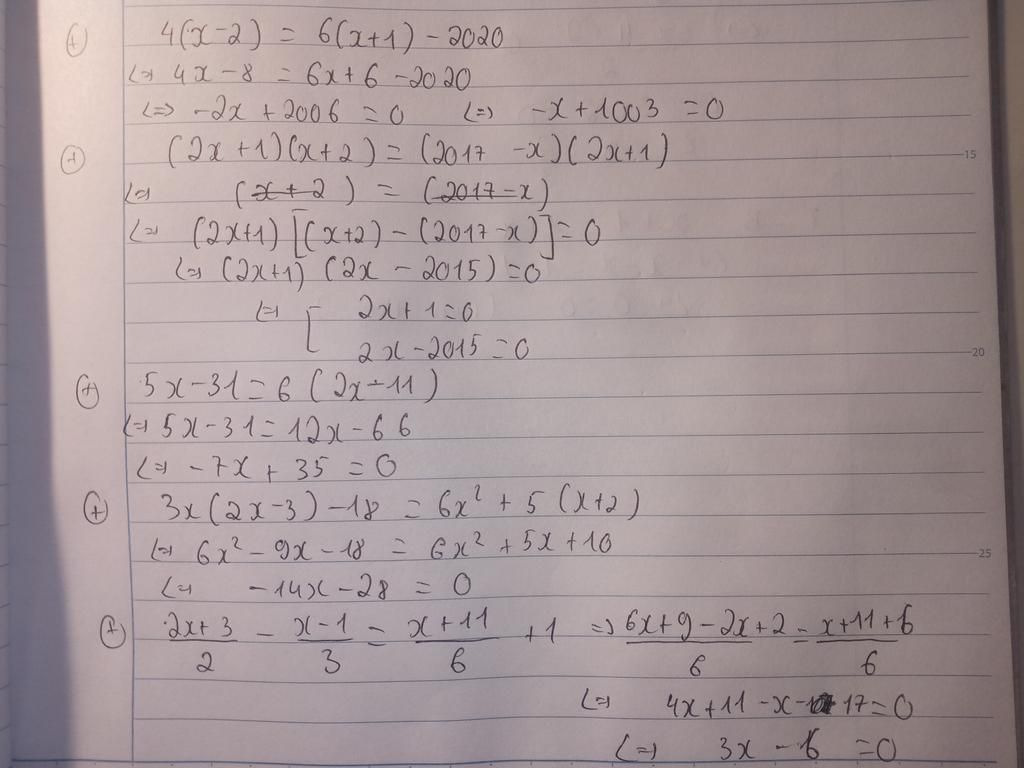 (+) 4(x-2) = 6(x+1) - 2020
<=> 4x - 8 = 6x + 6 - 2020
<=> -2x + 2006 = 0 <=> -x + 1003 = 0
(+) (2x+1)(x+2) = (2017 - x)(2x+1)
15
<=> (x+2) = (2017-x)
<=> (2x+1) [(x+2) - (2017-x)] = 0
<=> (2x+1) (2x - 2015) = 0
<=> [ 2x + 1 = 0
2x - 2015 = 0
20
(+) 5x - 31 = 6 (2x - 11)
<=> 5x - 31 = 12x - 66
<=> -7x + 35 = 0
(+) 3x(2x-3) - 18 = 6x² + 5 (x+2)
<=> 6x² - 9x - 18 = 6x² + 5x + 10
25
<=> -14x - 28 = 0
(+) (2x+3)/2 - (x-1)/3 = (x+11)/6 + 1 => (6x+9-2x+2)/6 = (x+11+6)/6
<=> 4x + 11 - x - 17 = 0
<=> 3x - 6 = 0